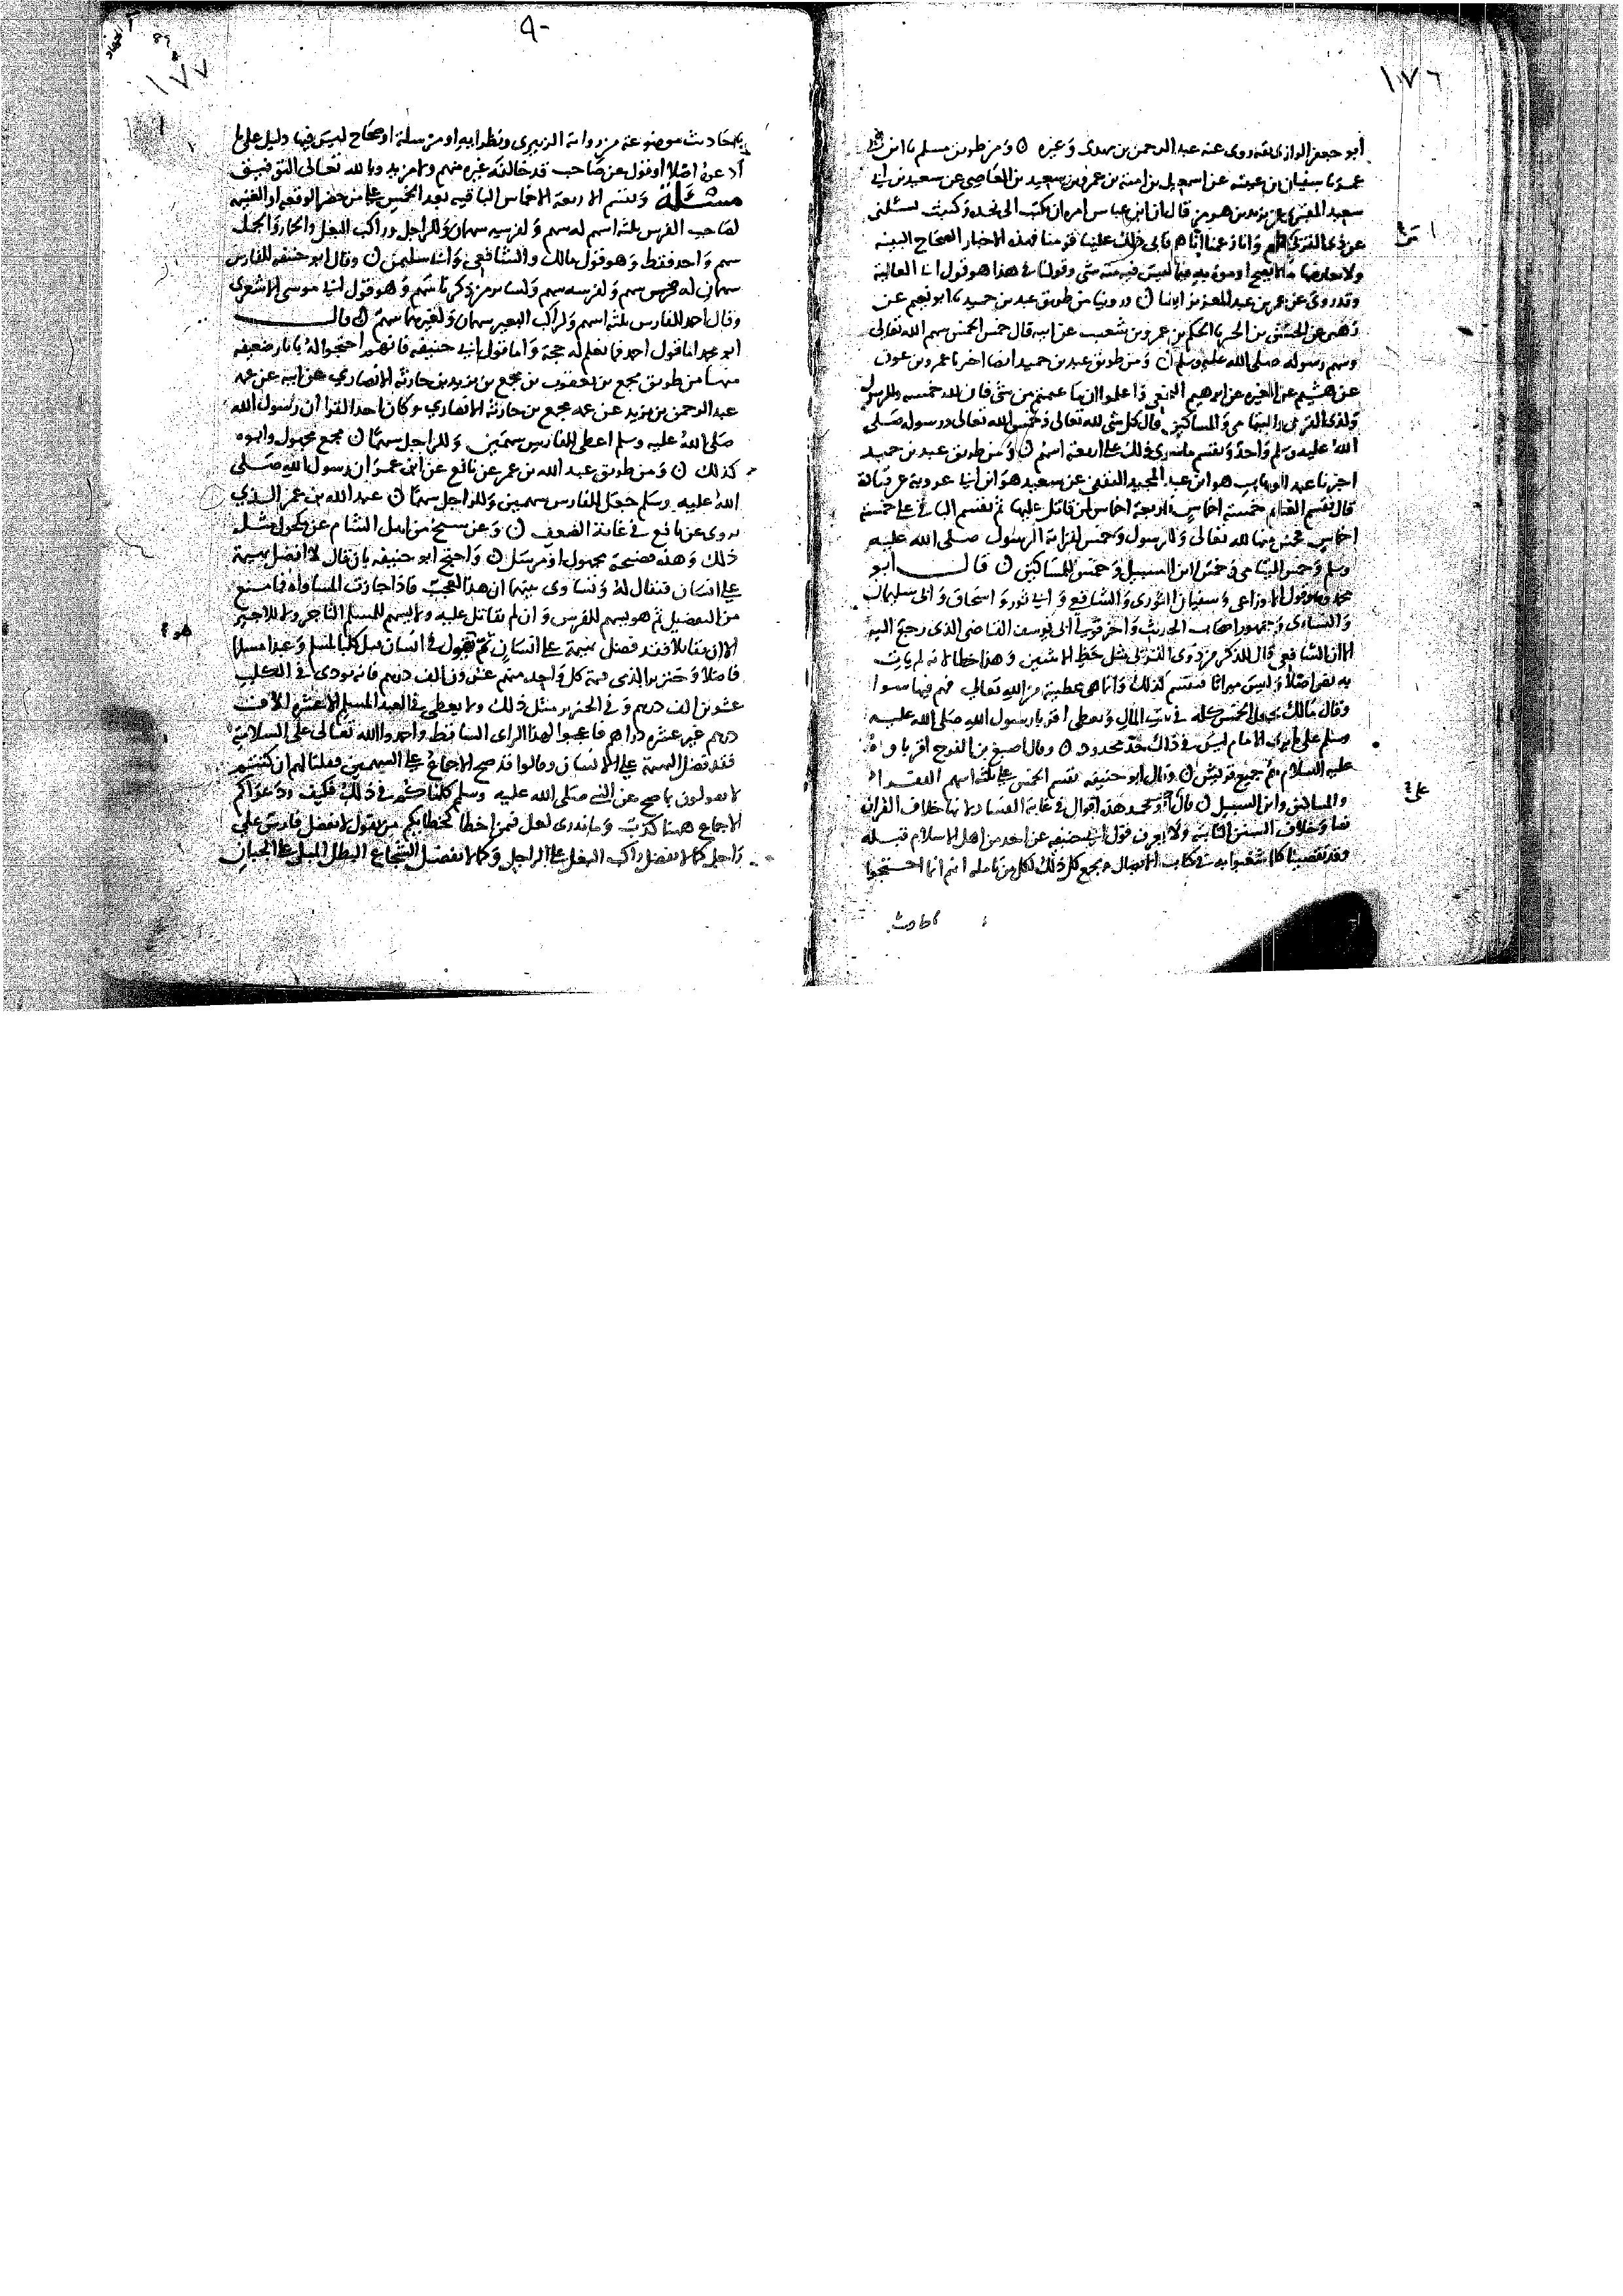 ١٧٦
أبو جعفر الرازي ثقة روى عنه عبد الرحمن بن مهدي وغيره ن ومن طريق مسلم نا ابن أبي
عمر نا سفيان بن عيينه عن اسمعيل بن امية عن سعيد بن أبي
سعيد المقبري عن يزيد بن هرمز قال ان ابن عباس امره ان يكتب الى نجده وكتبت تسئلنى
عن ذي القربى وانا زعمنا انا هم فابى ذلك علينا قومنا فهذه الاخبار الصحاح البينه
ولا يعارضها ما لا يصح وقولنا في هذا هو قول ابي العالية
وقد روى عن عمر بن عبد العزيز ايضا ن وروينا من طريق عبد بن حميد نا ابو نعيم عن
زهير عن الحسن بن الحر نا الحكم عن عمرو بن شعيب عن ابيه قال خمس الخمس سهم الله تعالى
وسهم رسوله صلى الله عليه وسلم ن ومن طريق عبد بن حميد ايضا اخرنا عمرو بن عون
عن هشيم عن المغيره عن ابرهيم النخعي واعلموا انما غنمتم من شي فان لله خمسه وللرسول
ولذي القربى واليتامى والمساكين قال كل شي لله تعالى وخمس الله تعالى ورسوله صلى
الله عليه وسلم واحد ويقسم ما سوى ذلك على اربعة اسهم ن ومن طريق عبد بن حميد
اخبرنا عبد الوهاب هو ابن عبد المجيد الثقفي عن سعيد هو ابن أبي عروبة عن قتادة
قال تقسم الغنائم خمسة اخماس فاربعة اخماس لمن قاتل عليها ثم يقسم الباقي على خمسة
اخماس فخمس منها لله تعالى وللرسول وخمس لقرابة الرسول صلى الله عليه
وسلم وخمس لليتامى وخمس لابن السبيل وخمس للمساكين ن قال أبو
محمد وهو قول الاوزاعى وسفيان الثورى والشافعي وابي ثور واسحاق وابى سليمان
والنسائى وجمهور اصحاب الحديث واخر قولي ابى يوسف القاضى الذى رجع اليه
الا ان الشافعي قال للذكر من ذوى القربى مثل حظ الانثيين وهذا خطا لانه لم يات
به نص اصلا وليس ميراثا فيقسم كذلك وانما هى عطية من الله تعالى فهم فيها سوا
وقال مالك يجعل الخمس كله في بيت المال ويعطى اقربا رسول الله صلى الله عليه
وسلم على ما يرى الامام ليس في ذلك حد محدود ن وقال اصبغ بن الفرج اقرباوه
عليه السلام هم جميع قريش ن وقال ابو حنيفه يقسم الخمس على ثلثة اسهم الفقرا
والمساكين وابن السبيل ن قال أبو محمد هذه اقوال في غاية الفساد لانها خلاف القران
نصا وخلاف السنن الثابته ولا يعرف قول ابي حنيفه عن احد من اهل الاسلام قبله
وقد تقصينا كلما شغبوا به في كتاب الايصال وجمع كل ذلك لكل من تامله انهم انما احتجوا
٩٠
١٧٧
باحاديث موضوعة من رواية الزبيرى ونظرايه او مرسلة او صحاح ليس فيها دليل على ما
ادعوه اصلا او قول عن صاحب قد خالفه غيره منهم ولا مزيد وبالله تعالى التوفيق
مسئلة وتقسم الاربعة الاخماس الباقيه بعد الخمس على من حضر الوقعه او الغنيمه
لصاحب الفرس ثلثة اسهم له سهم ولفرسه سهمان وللراجل وراكب البغل والحمار والجمل
سهم واحد فقط وهو قول مالك والشافعي وابي سليمن ن وقال ابو حنيفه للفارس
سهمان له سهم ولفرسه سهم ولسائر من ذكرنا سهم وهو قول ابي موسى الاشعرى
وقال احمد للفارس ثلثة اسهم ولراكب البعير سهمان ولغيرهما سهم ن قال
ابو محمد اما قول احمد فما نعلم له حجة واما قول ابي حنيفه فانهم احتجوا له باثار ضعيفه
منها من طريق مجمع بن يعقوب بن مجمع بن يزيد بن حارثة الانصاري عن ابيه عن عمه
عبد الرحمن بن يزيد عن عمه مجمع بن حارثة الانصاري وكان احد القرا ان رسول الله
صلى الله عليه وسلم اعطى للفارس سهمين وللراجل سهما ن مجمع مجهول وابوه
كذلك ن ومن طريق عبد الله بن عمر عن نافع عن ابن عمر ان رسول الله صلى
الله عليه وسلم جعل للفارس سهمين وللراجل سهما ن عبد الله بن عمر الذي
يروى عن نافع في غاية الضعف ن وعن شيخ من اهل الشام عن مكحول مثل
ذلك وهذه فضيحة مجهول او مرسل ن واحتج ابو حنيفه بان قال لا افضل بهيمة
على انسان فيقال له وتساوى بينهما ان هذا لعجب فاذا جازت المساواه فما منع
من التفضيل ثم هو يسهم للفرس وان لم يقاتل عليه ولا يسهم للمسلم التاجر ولا للاجير
الا ان يقاتلا فقد فضل بهيمة على انسان ثم يقول في انسان قتل كلبا لمسلم وعبدا مسلما
فاضلا وخنزيرا لذمى قيمة كل واحد منهم عشرون الف درهم فانه يودى في الكلب
عشرين الف درهم وفي الخنزير مثل ذلك ولا يعطى في العبد المسلم الا عشرة الاف
درهم غير عشرة دراهم فاعجبوا لهذا الراى الساقط واحمدوا الله تعالى على السلامة
فقد فضل البهيمة على الانسان وقالوا قد صح الاجماع على السهمين فقلنا لهم ان كنتم
لا تقولون بما صح عن النبي صلى الله عليه وسلم كلفناكم في ذلك فكيف ودعواكم
الاجماع ههنا كذب وما ندرى لعل فيمن اخطا كخطايكم من يقول لا يفضل فارس على
راجل كما لا يفضل راكب البغل على الراجل وكما لا يفضل الشجاع البطل المبلى على الجبان